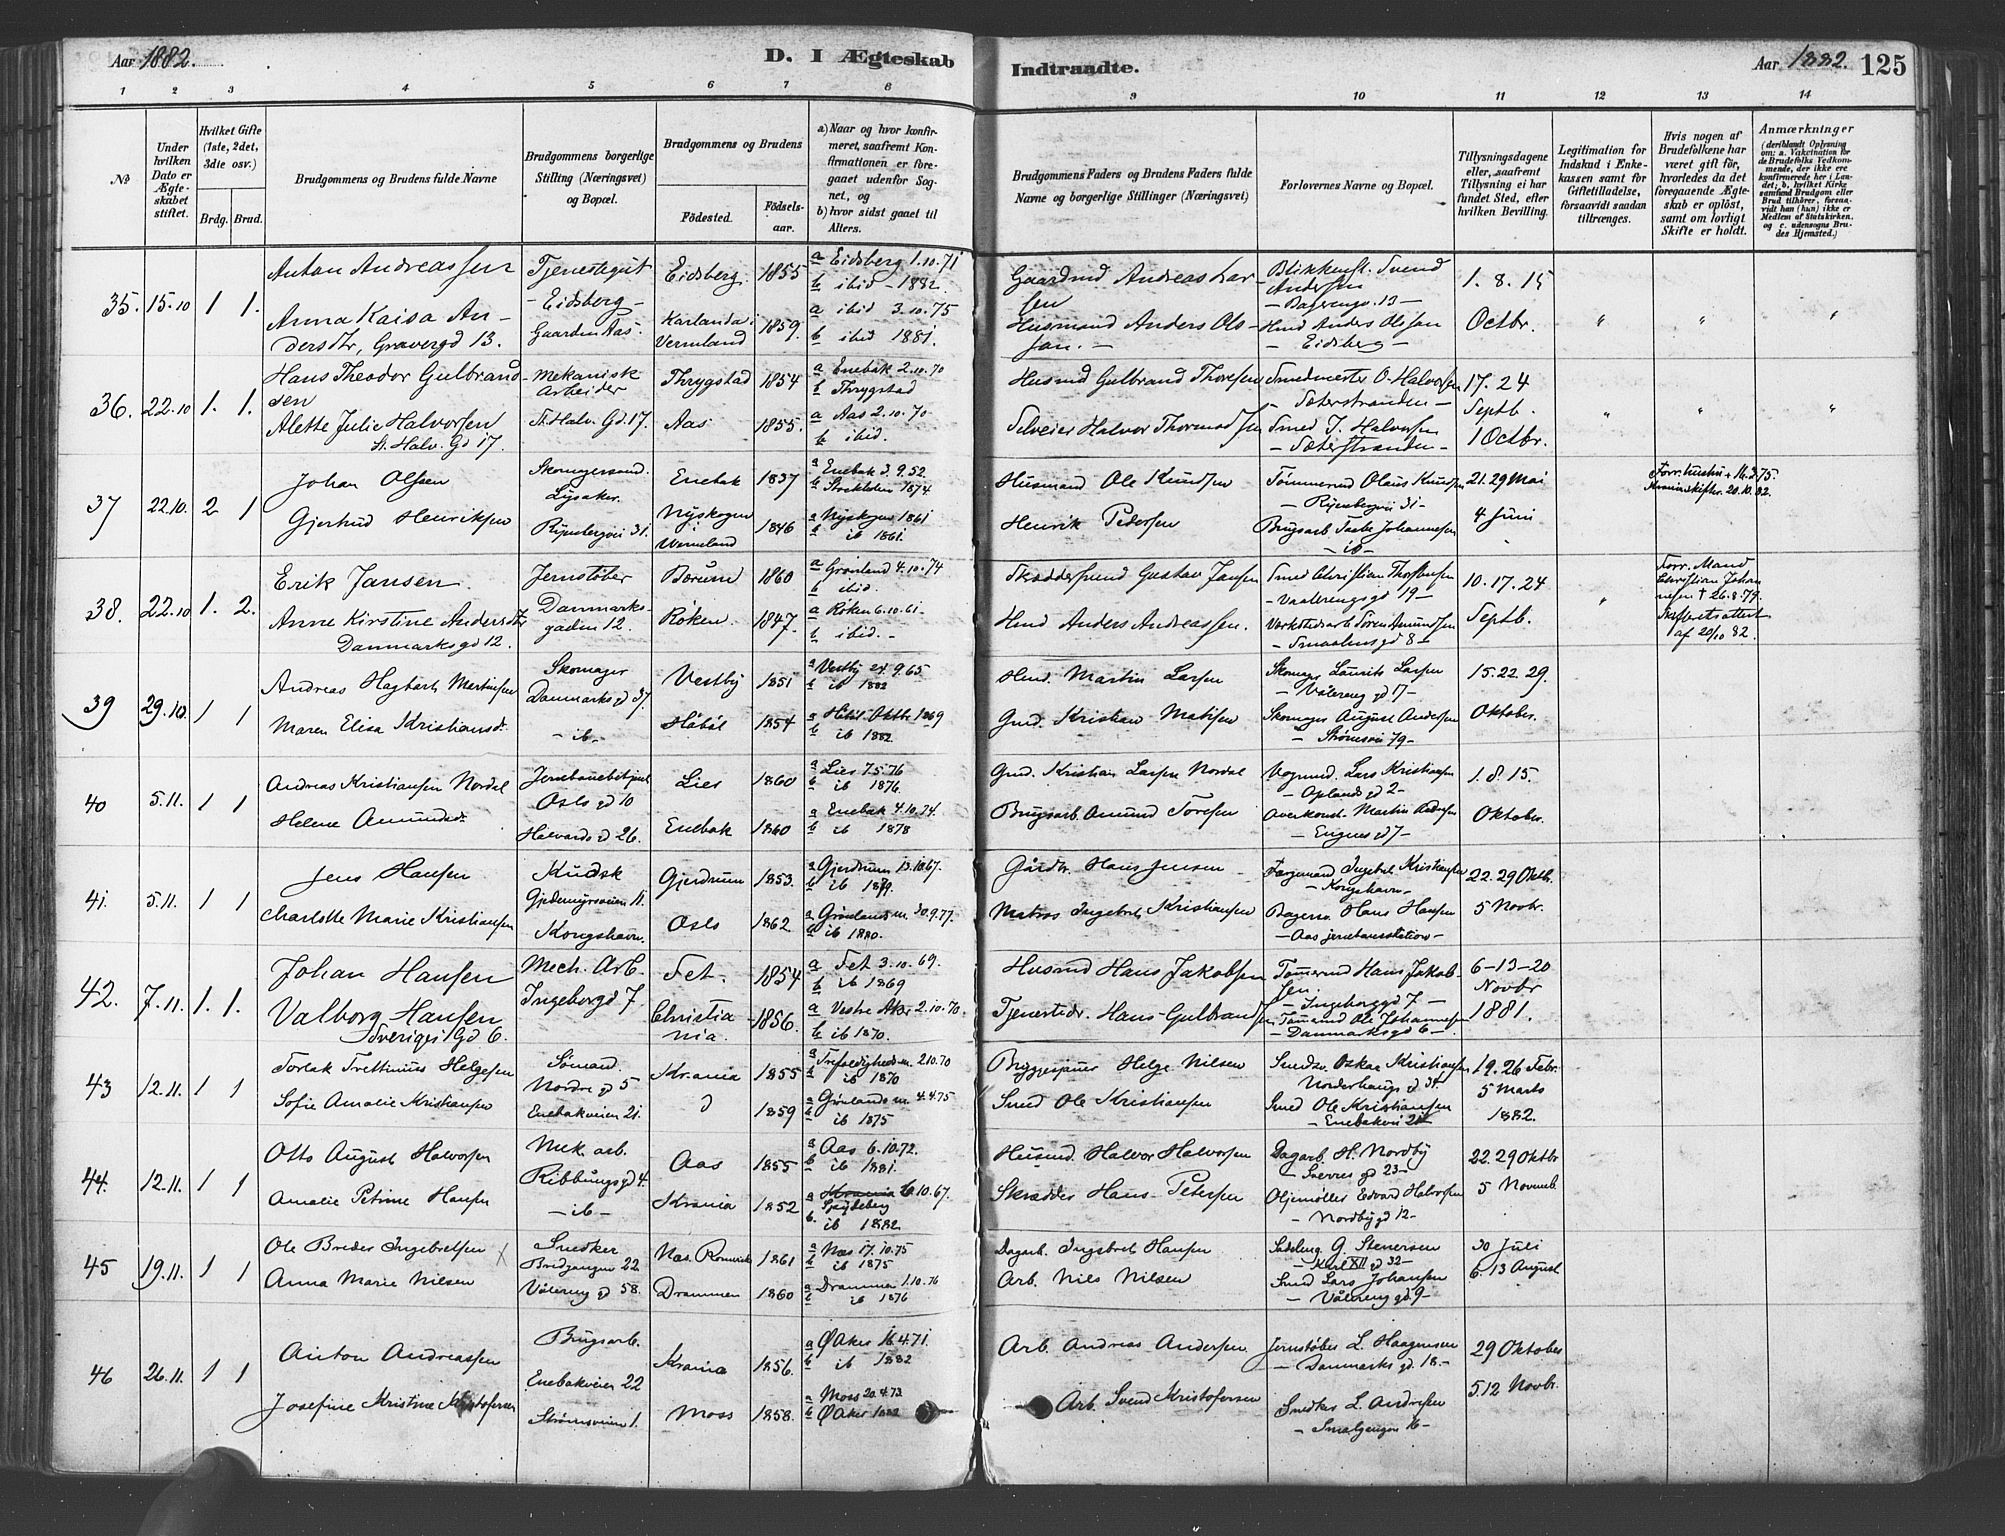 Aar 1882.
D. I Ægteskab
Indtraadte.
Aar 1882.
125
1 2 3 4 5 6 7 8 9 10 11 12 13 14
No
Under hvilken Dato er Ægteskabet stiftet.
Hvilket Gifte (1ste, 2det, 3die osv.)
Brdg. Brud.
Brudgommens og Brudens fulde Navne
Brudgommens borgerlige Stilling (Næringsvei) og Bopæl.
Brudgommens og Brudens
Fødested.
Fødselsaar.
a) Naar og hvor konfirmeret, saafremt Konfirmationen er foregaaet udenfor Sognet, og
b) hvor sidst gaaet til Alters.
Brudgommens Faders og Brudens Faders fulde Navne og borgerlige Stillinger (Næringsvei)
Forlovernes Navne og Bopæl.
Tillysningsdagene eller, saafremt Tillysning ei har fundet Sted, efter hvilken Bevilling.
Legitimation for Indskud i Enkekassen samt for Giftetilladelse, forsaavidt saadan tiltrænges.
Hvis nogen af Brudefolkene har været gift før, hvorledes da det foregaaende Ægteskab er opløst, samt om lovligt Skifte er holdt.
Anmærkninger (deriblandt Oplysning om: a. Vakcination for de Brudefolks Vedkommende, der ikke ere konfirmerede her i Landet; b. hvilket Kirkesamfund Brudgom eller Brud tilhører, forsaavidt han (hun) ikke er Medlem af Statskirken, og c. udensogns Brudes Hjemsted.)
35. 15.10 1 1. Anton Andreassen Tjenestegut - Eidsberg - Eidsberg 1855 a Eidsberg 1.10.71 b ibid - 1882. Gaardmd Anders Larsen Blikkensl. Svend Andersen - Bagerengv. 13 - 1. 8. 15
Anna Kaisa Andersdtr, Gravergd 13. Gaarden Aas. Karlanda i Vermland 1859. a ibid 3.10.75 b ibid 1881. Husmand Anders Olsson. - Hmd Anders Olsson - Eidsberg - Octbr. " " "
36. 22.10 1. 1. Hans Theodor Gulbrandsen Mekanisk Arbeider Thrygstad 1854 a Enebak 2.10.70 b Thrygstad Husmd Gulbrand Thoresen Smedmester O. Halvorsen - Sæterstranden - 17. 24 Septb.
Alette Julie Halvorsen St. Halv. Gd 17. St. Halv. Gd. 17. Aas 1855. a Aas 2.10.70 b ibid. Selveier Halvor Thormodsen Smed J. Halvorsen - Sæterstranden - 1 Octbr. " " "
37 22.10. 2 1 Johan Olsen Lysaker. Enebak 1837 a Enebak 3.9.52 b Stockholm 1874 Husmand Ole Knudsen Tømmermd Olaus Knudsen - Ryenbergvei 31 - 21. 29 Mai
Gjertrud Henriksen Ryenbergvei 31. Nyskogen Vermeland 1846 a Nyskogen 1861 b ib 1861. Henrik Pedersen - ib - 4 Juni
38. 22.10 1. 2. Erik Jansen Jernstøber Bærum 1860 a Grønland 4.10.74 b ibid. Gustav Jansen Smed Christian Thorstensen - Vaalerengsgd 19 - 10. 17. 24 Septb. " Forr. Mand Christian Johannesen † 26.8.79. Skifteattest af 20/10 82.
Anne Kirstine Andersdtr Danmarksgd 12. Danmarksgaden 12. Røken. 1847. a Røken 6.10.61 - b ibid. - Hmd Anders Andreassen. Værkstedsarb Søren Amundsen - Smaalensgd 8 -
39 29.10. 1 1 Andreas Hagbart Martinsen Skomager Danmarksgd 37. Vestby 1851 a Vestby 24.9.65 b ib 1882 Hmd. Martin Larsen Skomag. Laurits Larsen - Vålereng gd 17 - 15. 22. 29.
Maren Elisa Kristiansdt. - ib - Håbøl 1854 a Håbøl Oktbr 1869 b ib 1882. Gmd. Kristian Matisen Skomager August Andersen - Strømsvei 79 - Oktober.
40 5.11. 1 1 Andreas Kristiansen Nordal Jernbanebetjent Oslo gd 10 Lier 1860 a Lier 7.5.76 b ib 1876. Gmd. Kristian Larsen Nordal Vognmd. Lars Kristiansen - Oplands gd 2 - 1. 8. 15.
Helene Amundsdt. Halvards gd 26. Enebak 1860 a Enebak 4.10.74. b ib 1878 Brugsarb. Amund Toresen Martin Pedersen - Enguns gd 7 - Oktober.
41. 5.11. 1 1 Jens Hansen Kudsk Gjedemyrsveien 11. Gjerdrum 1853. a Gjerdrum 13.10.67. b ib 1879. Gårdbr. Hans Jensen Færgemand Ingebret Kristiansen - Kongshavn - 22. 29 Oktbr.
Charlotte Marie Kristiansen Kongshavn. Oslo 1862 a Grønlands m. 30.9.77. b ib 1880. Matros Ingebret Kristiansen Bagersv. Hans Hansen - Aas jernbanestation - 5 Novbr.
42. 7.11. 1. 1. Johan Hansen Mech. Arb. Ingeborgd 7. Fet. 1854 a Fet 3.10.69. b ib 1869 Husmd Hans Jakobsen Tømmermd Hans Jakobsen. - Ingeborggd 7 - 6-13-20 Novbr
Valborg Hansen Sveriges Gd 6. Christiania. 1856. a Vestre Aker 2.10.70. b ib 1870. Tjenestedr. Hans Gulbrandsen Tømmermd Ole Johannesen - Danmarksgd 6 - 1881.
43 12.11. 1 1 Torlak Trettinius Helgesen Sømand. Nordre gd 5 Kr.ania 1855 a Trefoldigheds m. 2.10.70 b ib 1870 Bryggesjouer Helge Nilsen Smedsv. Oskar Kristiansen Norderhaugs gd 34. 19. 26 Febr.
Sofie Amalie Kristiansen Enebakveien 21. d 1859 a Grønlands m. 4.4.75 b ib 1875 Smed Ole Kristiansen Smed Ole Kristiansen - Enebakvei 21 5 Marts 1882.
44. 12.11. 1 1 Otto August Halvorsen Mek. arb. Ribbungs gd 4. Aas 1855 a Aas 6.10.72. b ib 1881. Husmd. Halvor Halvorsen Dagarb. H. Nordby - Sverres gd 23 - 22. 29 Oktbr
Amalie Petrine Hansen - ib - Krania 1852 a Krania 6.10.67. Spydeberg b. ib 1882 Skrædder Hans Petersen Oljemøller Edvard Halvorsen - Nordby gd 12 - 5 Novemb.
45 19.11. 1 1 Ole Breder Ingebretsen × Snedker Bredgangen 22 Næs. Romerike 1861 a Næs 17.10.75 b ib 1875 Dagarb. Ingebret Hansen Sadelmg. G. Stenersen - Karl XII gd 32 - 30 Juli
Anna Marie Nilsen Vålereng gd 58. Drammen 1860 a Drammen 1.10.76 b ib 1876 Arb. Nils Nilsen Smed Lars Johansen - Vålereng gd. 9 - 6. 13 August
46 26.11. 1 1 Anton Andreassen Brugsarb. Enebakveien 22 Krania 1856. a Ø Aker 16.4.71. b ib 1882 Arb. Andreas Andersen Jernstøber L. Haagensen - Danmarks gd. 18. - 29 Oktober
Josefine Kristine Kristofersen Strømsveien 1. Moss 1858. a Moss 20.4.73. b Ø Aker 1882 Arb. Svend Kristofersen Snedker L. Andresen - Smalgangen 16 - 5 12 Novbr.